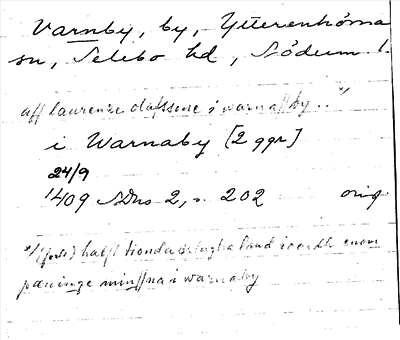 Varnby, by, Ytterenhörna
sn, Selebo hd, Söderm l.
aff laurense olafssone i warnaby .. x/
i Warnaby [2 ggr]
24/9
1409 SDns 2, s. 202 orig
x/ (jak) halft tionda örtugha land iordh enom
pæninge minssna i warnaby